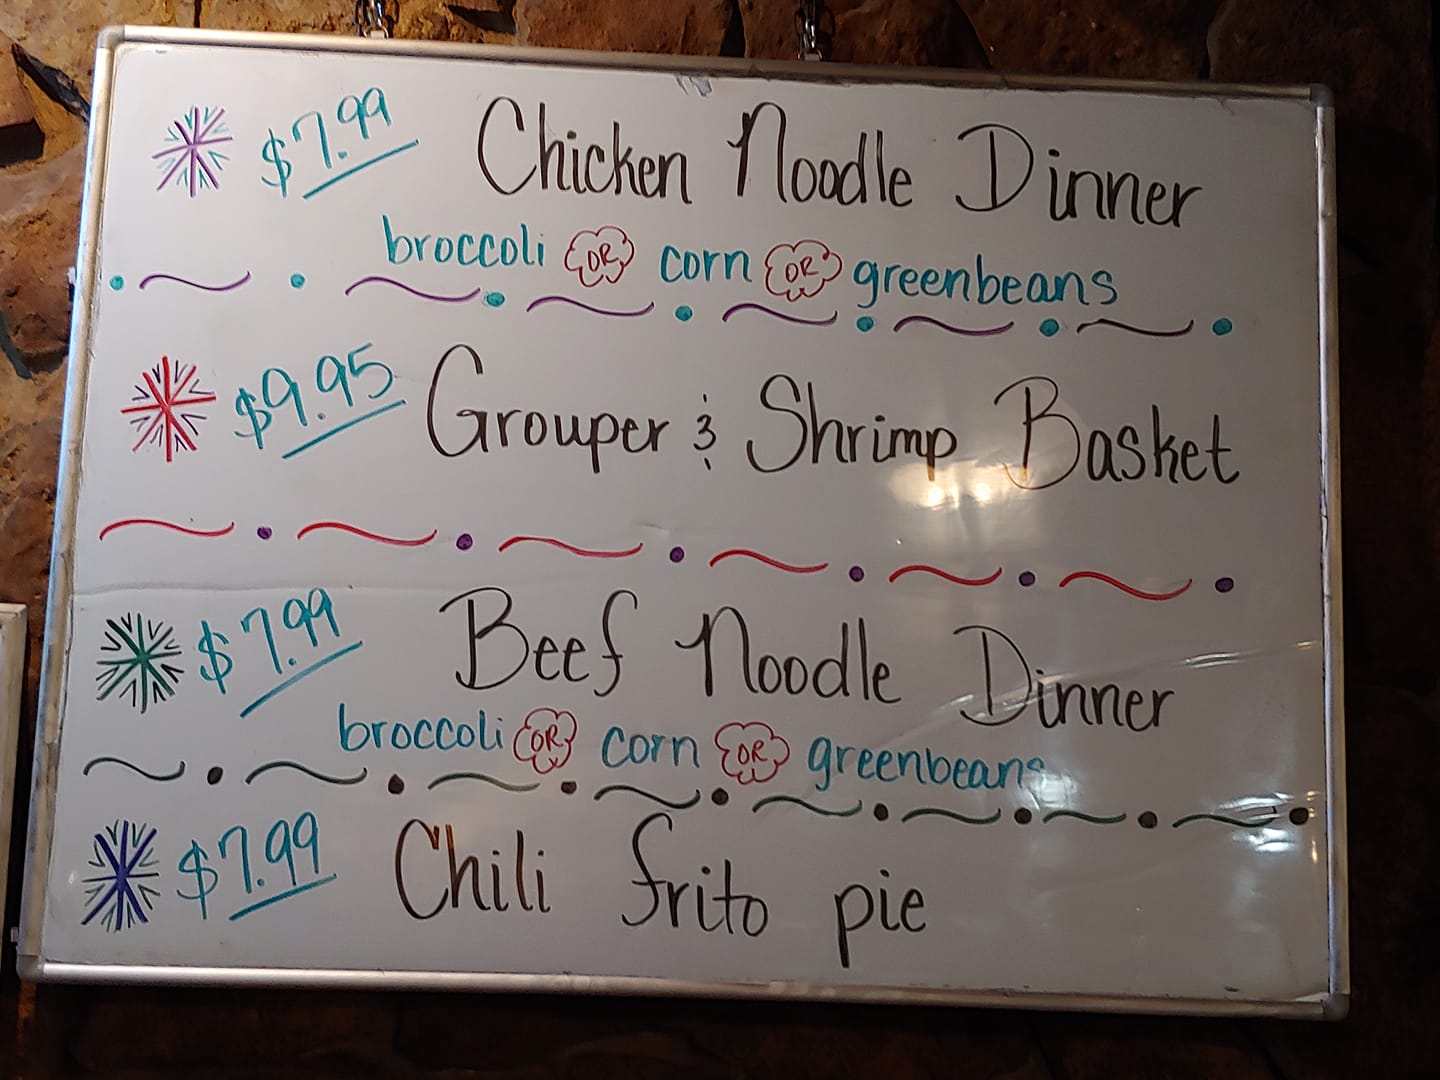 $7.99 Chicken Noodle Dinner
broccoli OR corn OR greenbeans
$9.95 Grouper & Shrimp Basket
$7.99 Beef Noodle Dinner
broccoli OR corn OR greenbeans
$7.99 Chili frito pie